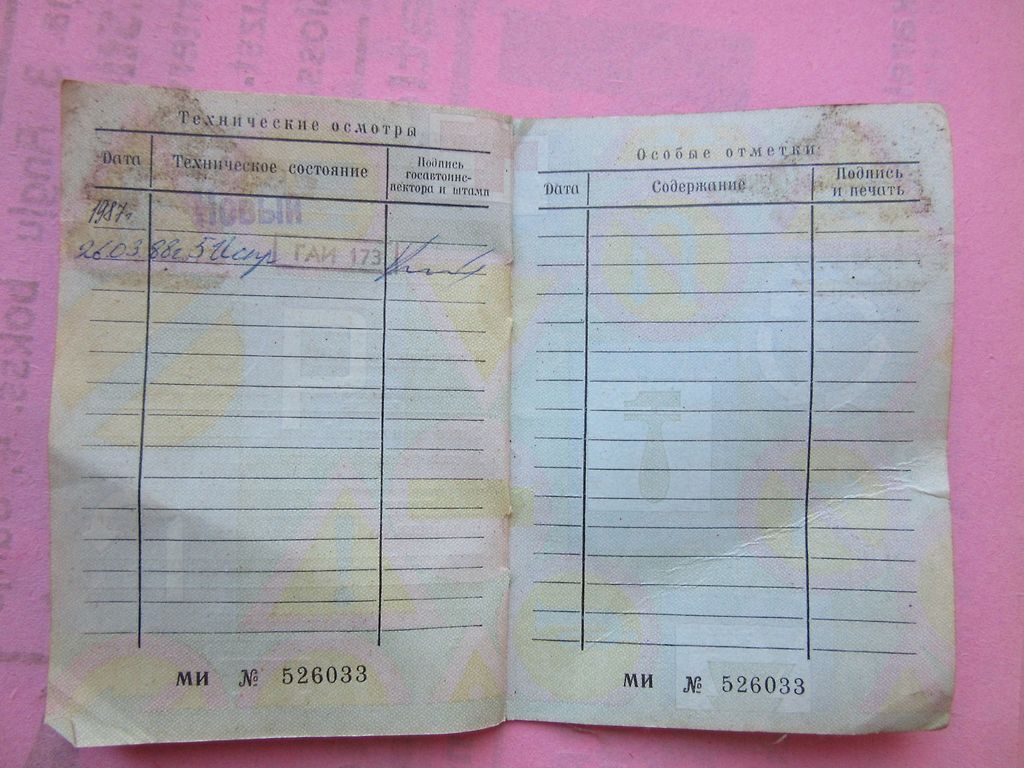 Технические осмотры
Дата
Техническое состояние
Подпись
госавтоинс-
пектора и штамп
1987г
НОВЫЙ
26.03.88г.
ГАИ 173
МИ № 526033
Особые отметки
Дата
Содержание
Подпись
и печать
МИ № 526033